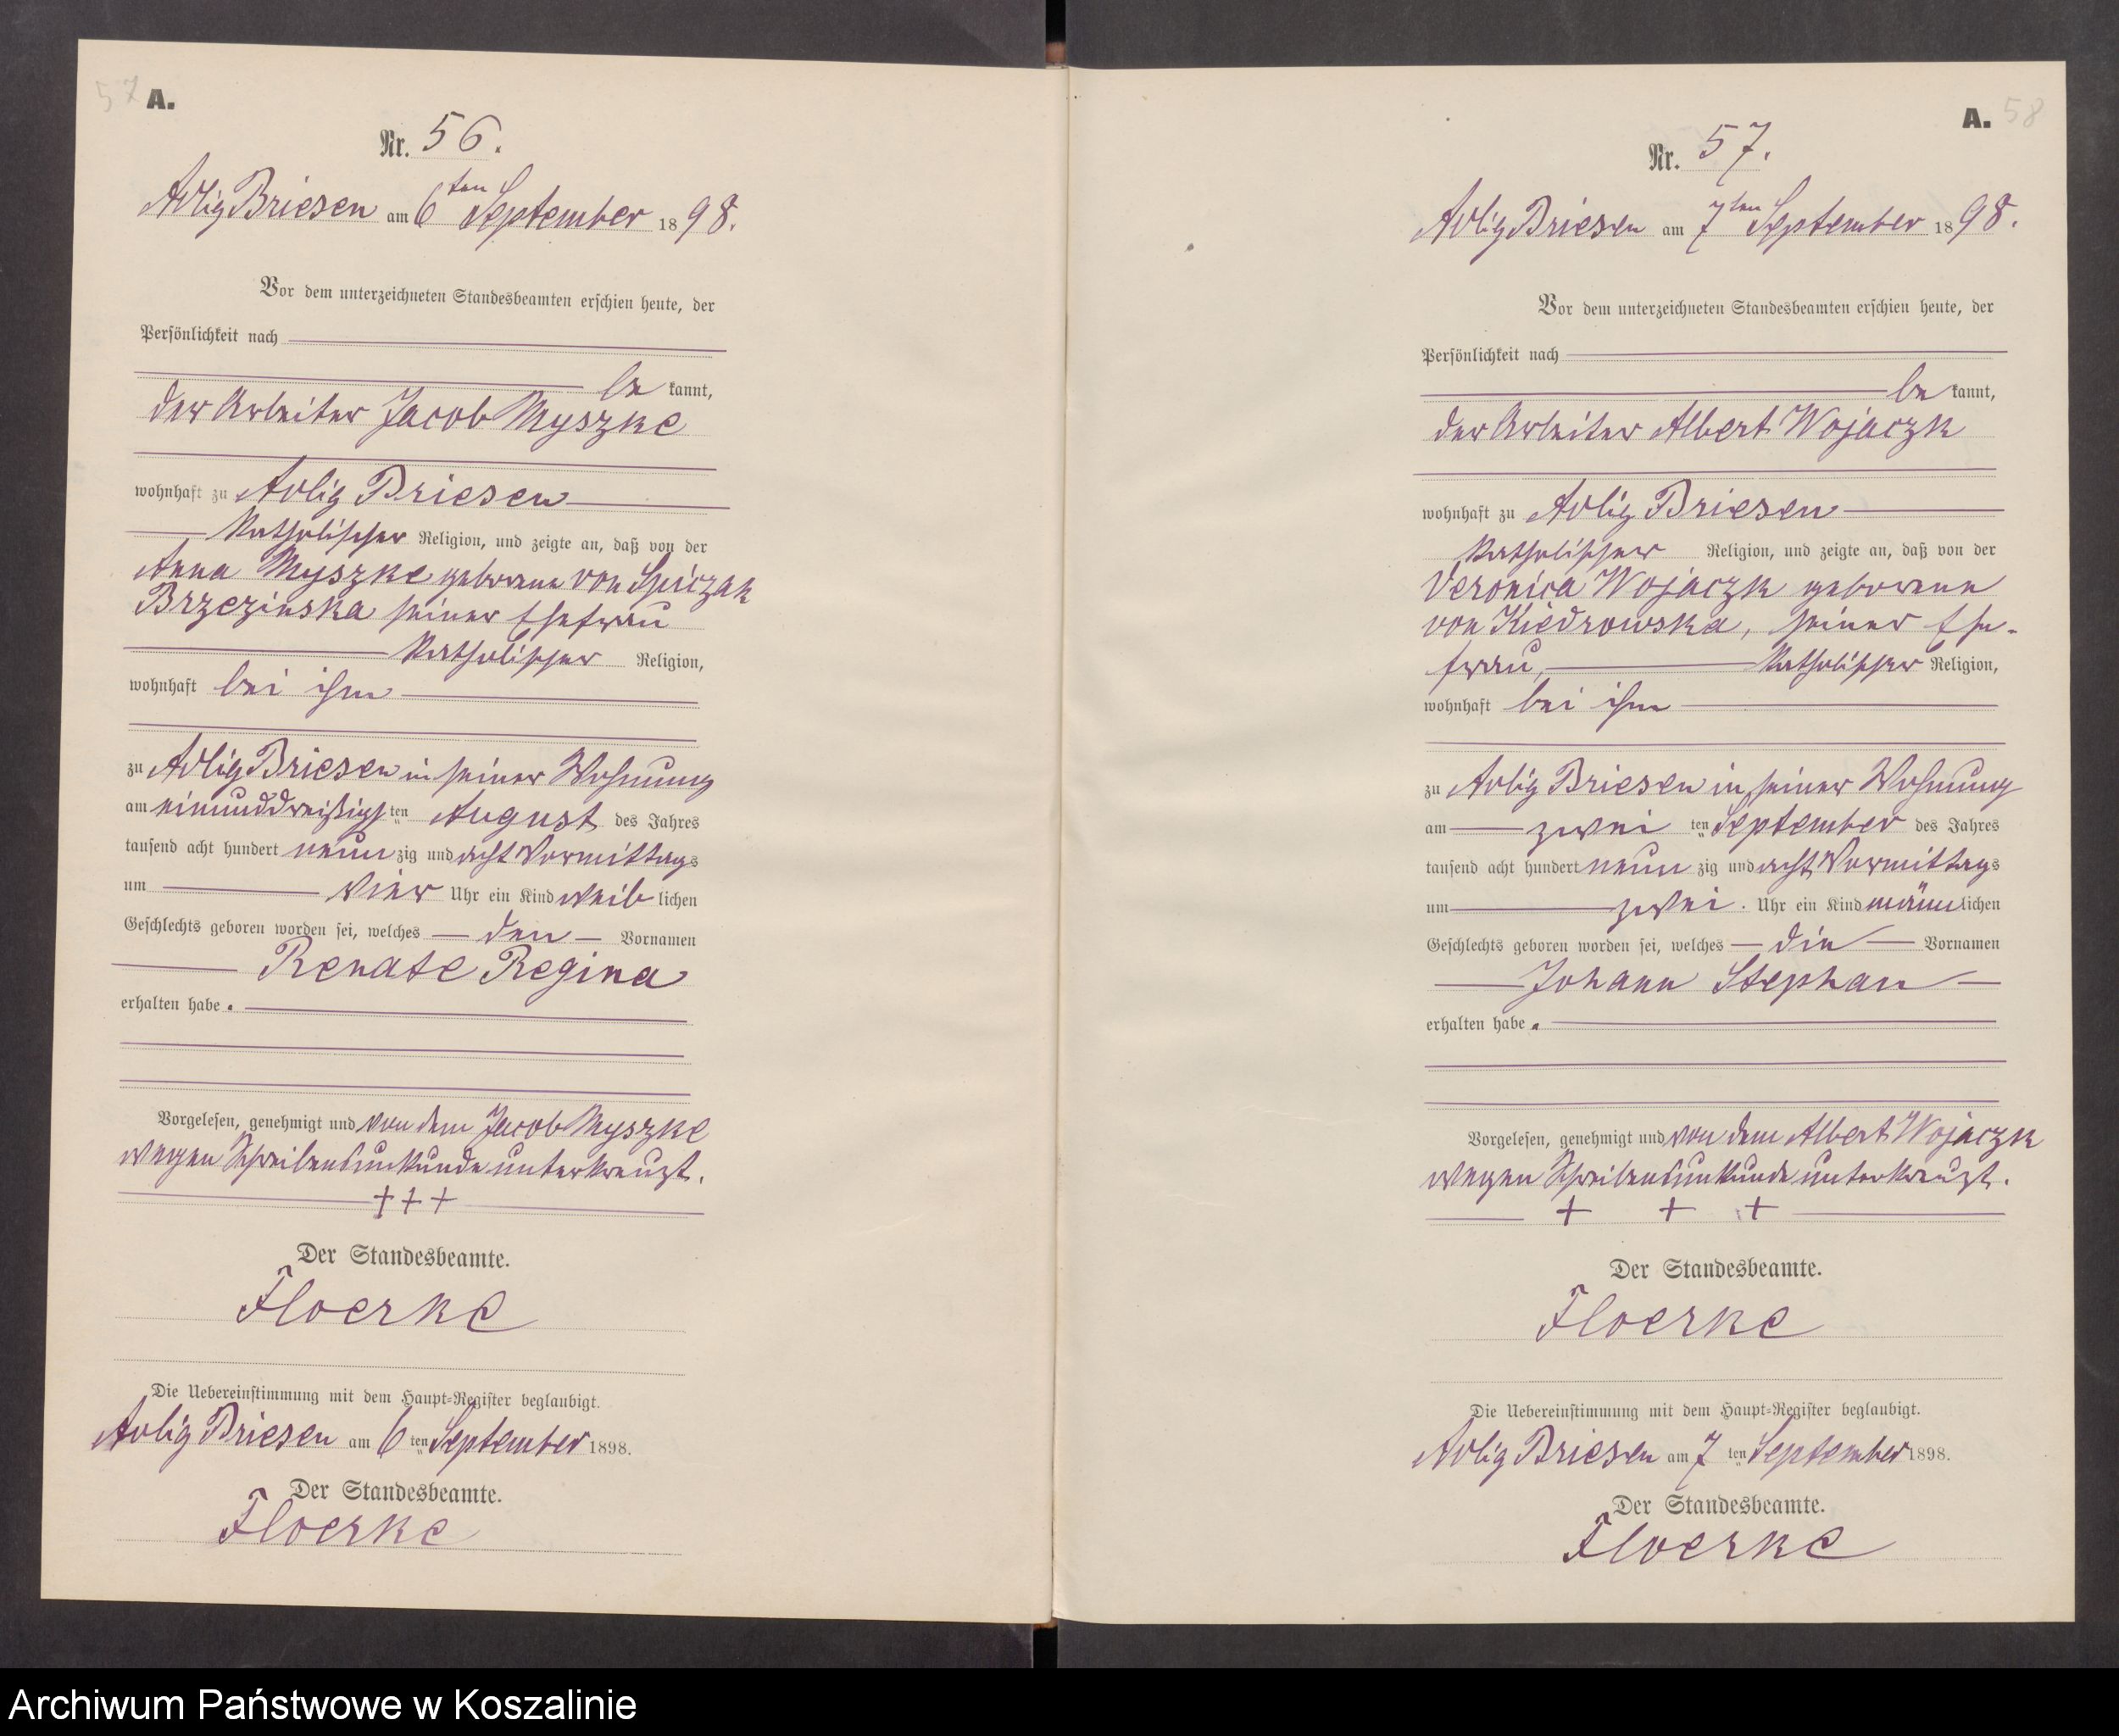 57 A.
Nr. 56.
Adlig Briesen am 6ten September 1898.
Vor dem unterzeichneten Standesbeamten erschien heute, der
Persönlichkeit nach
be kannt,
der Arbeiter Jacob Myszke
wohnhaft zu Adlig Briesen
katholischer Religion, und zeigte an, daß von der
Anna Myszke geborene von Spiczak
Brzezinska seiner Ehefrau
katholischer Religion,
wohnhaft bei ihm
zu Adlig Briesen in seiner Wohnung
am einunddreißigsten August des Jahres
tausend acht hundert neunzig und acht Vormittags
um vier Uhr ein Kind weiblichen
Geschlechts geboren worden sei, welches den Vornamen
Renate Regina
erhalten habe.
Vorgelesen, genehmigt und von dem Jacob Myszke
wegen Schreibensunkunde unterkreuzt.
+++
Der Standesbeamte.
Floerke
Die Uebereinstimmung mit dem Haupt-Register beglaubigt.
Adlig Briesen am 6ten September 1898.
Der Standesbeamte.
Floerke
A. 58
Nr. 57.
Adlig Briesen am 7ten September 1898.
Vor dem unterzeichneten Standesbeamten erschien heute, der
Persönlichkeit nach
be kannt,
der Arbeiter Albert Wojaczk
wohnhaft zu Adlig Briesen
katholischer Religion, und zeigte an, daß von der
Veronica Wojaczk geborene
von Kiedrowska, seiner Ehe-
frau, katholischer Religion,
wohnhaft bei ihm
zu Adlig Briesen in seiner Wohnung
am zwei ten September des Jahres
tausend acht hundert neun zig und acht Vormittags
um zwei Uhr ein Kind männlichen
Geschlechts geboren worden sei, welches die Vornamen
Johann Stephan
erhalten habe.
Vorgelesen, genehmigt und von dem Albert Wojaczk
wegen Schreibensunkunde unterkreuzt.
+ + +
Der Standesbeamte.
Floerke
Die Uebereinstimmung mit dem Haupt-Register beglaubigt.
Adlig Briesen am 7 ten September 1898.
Der Standesbeamte.
Floerke
Archiwum Państwowe w Koszalinie